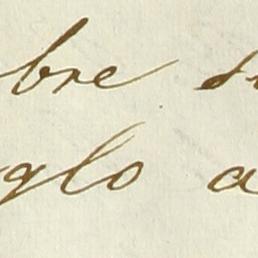 bre s
glo a